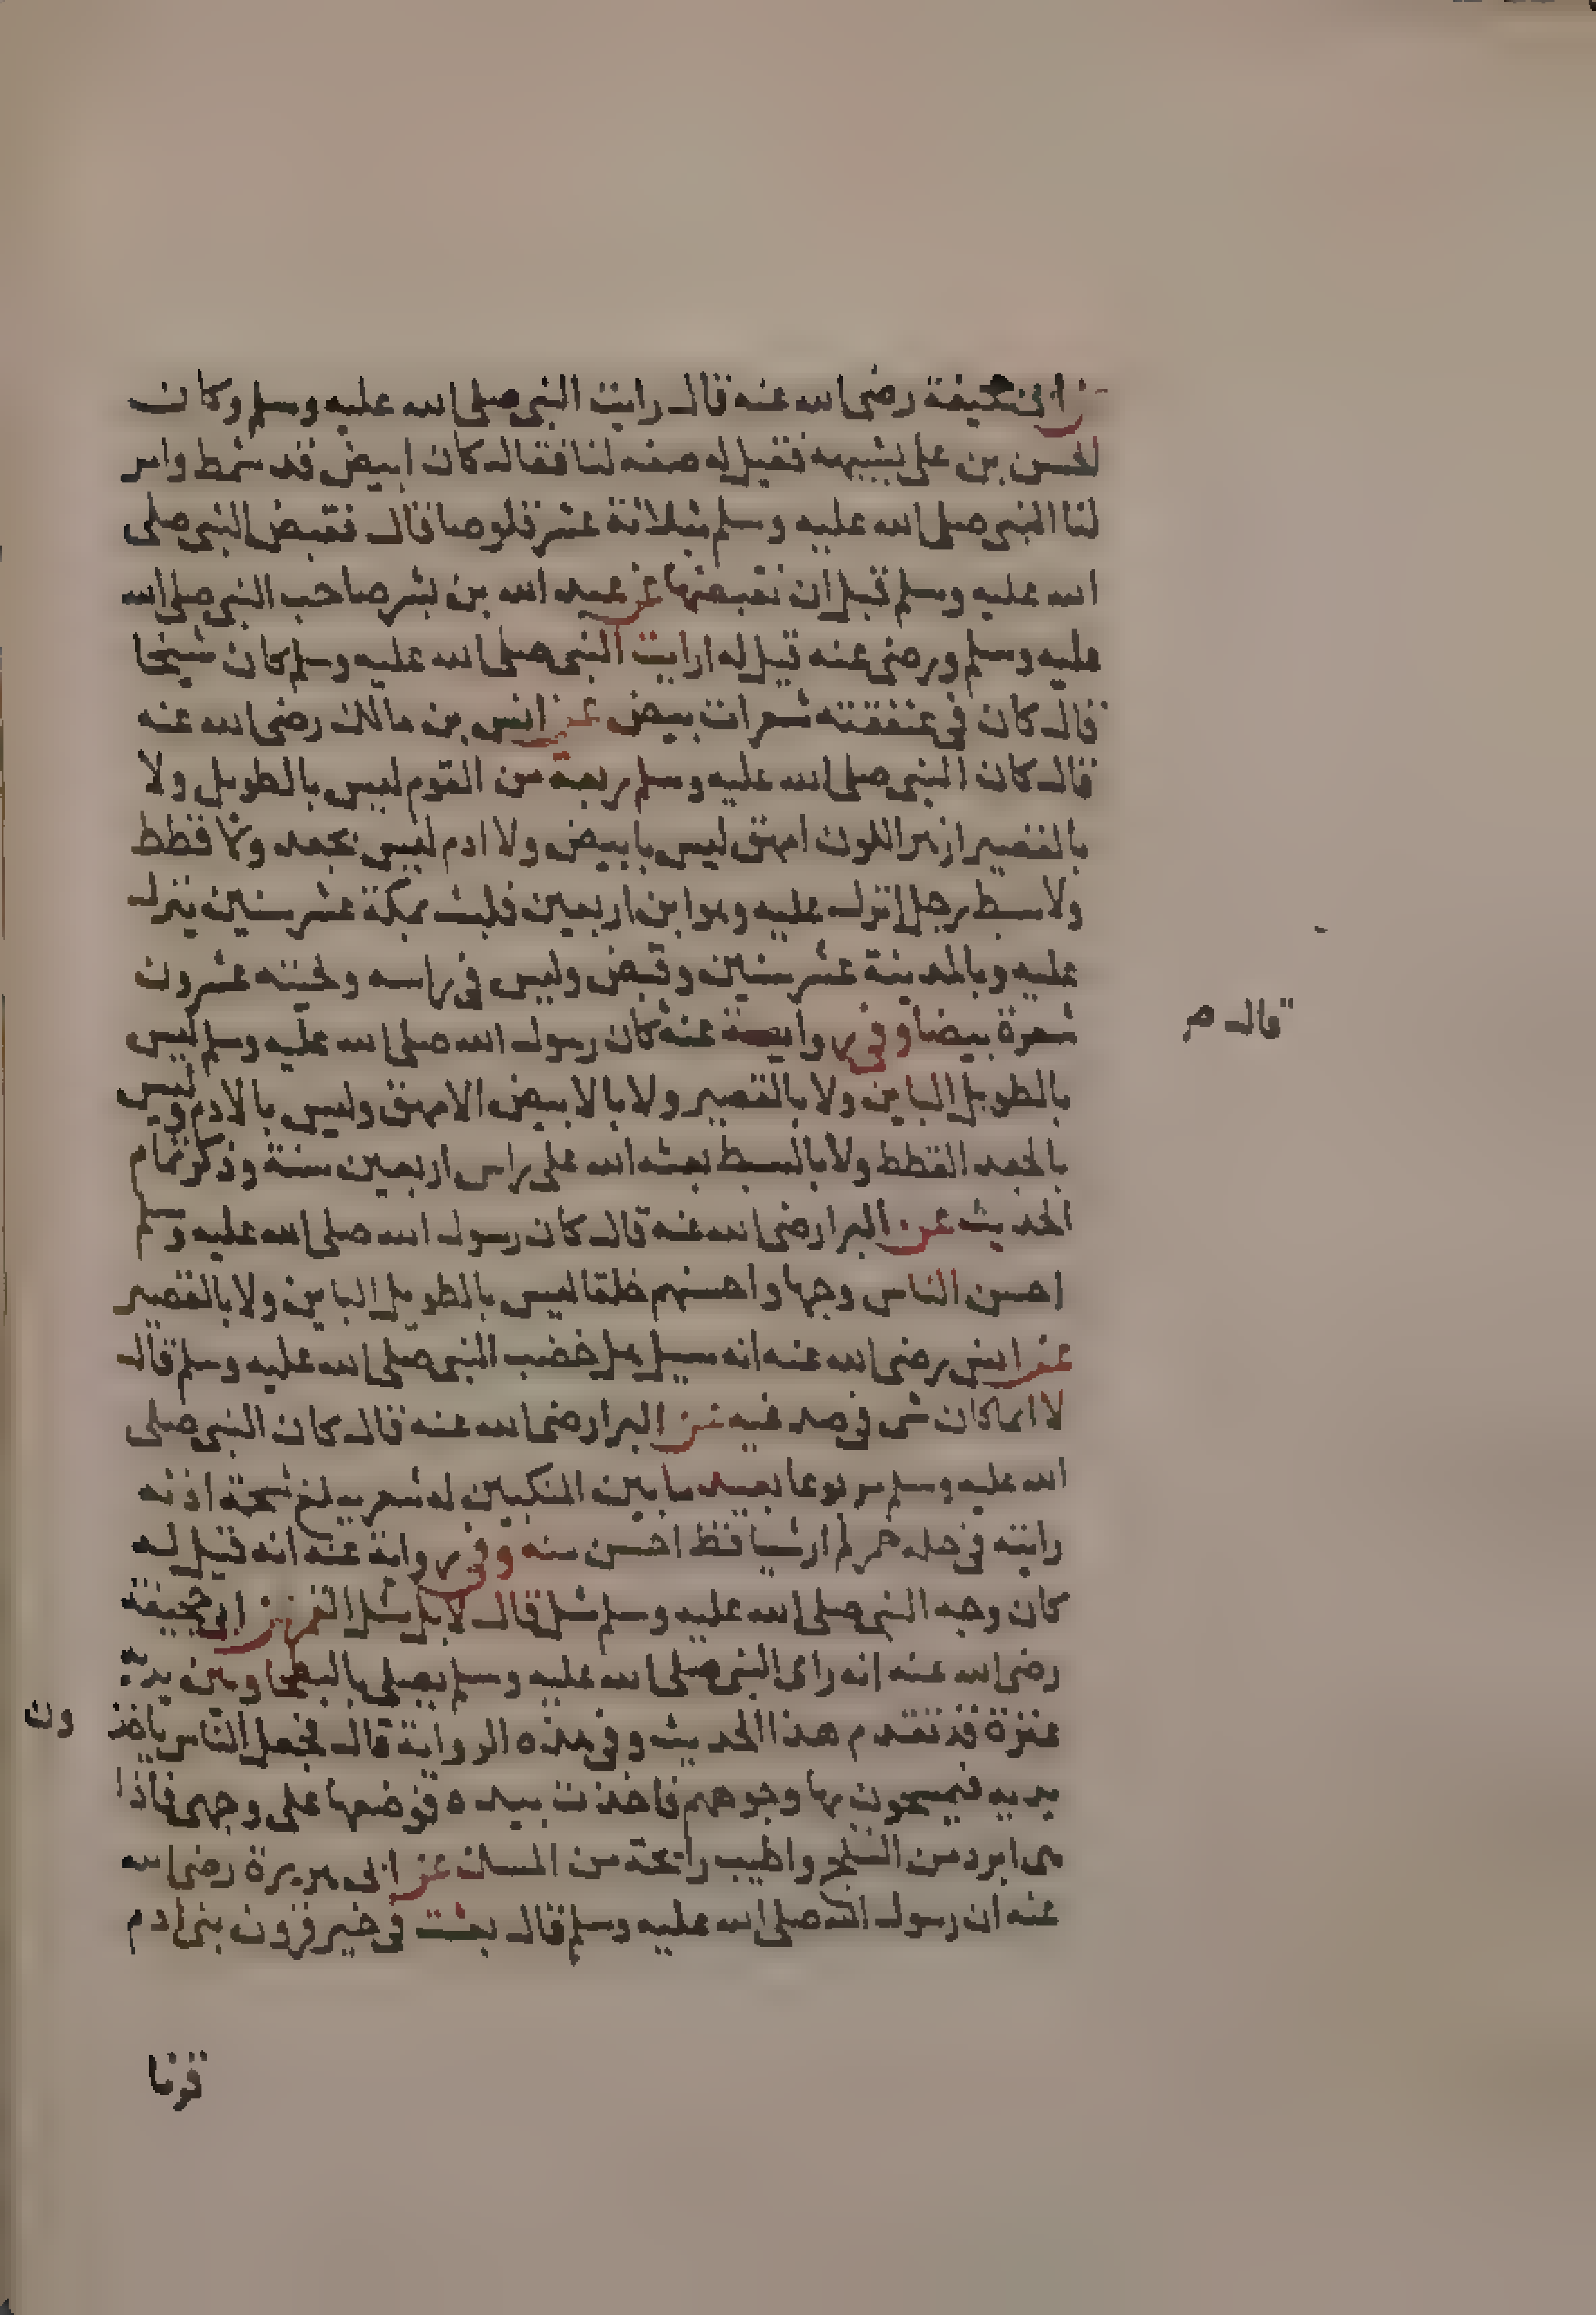 عن ابى جحيفة رضى الله عنه قال رايت النبى صلى الله عليه وسلم وكان
الحسن بن على يشبهه فقيل له صفه لنا فقال كان ابيض قد شمط وامر
لنا النبى صلى الله عليه وسلم بثلاثة عشر قلوصا قال فقبض النبى صلى
الله عليه وسلم قبل ان نقبضها عن عبد الله بن بسر صاحب النبى صلى الله
عليه وسلم ورضى عنه قيل له ارايت النبى صلى الله عليه وسلم كان شيخا
قال كان فى عنفقته شعرات بيض عن انس بن مالك رضى الله عنه
قال كان النبى صلى الله عليه وسلم ربعة من القوم ليس بالطويل ولا
بالقصير ازهر اللون امهق ليس بابيض ولا ادم ليس بجعد ولا قطط
ولا سبط رجل انزل عليه وهو ابن اربعين فلبث بمكة عشر سنين ينزل
عليه وبالمدينة عشر سنين وقبض وليس فى راسه ولحيته عشرون
شعرة بيضا وفى رواية عنه كان رسول الله صلى الله عليه وسلم ليس
بالطويل الباين ولا بالقصير ولا بالابيض الامهق وليس بالادم وليس
بالجعد القطط ولا بالسبط بعثه الله على راس اربعين سنة وذكر تمام
الحديث عن البرا رضى الله عنه قال كان رسول الله صلى الله عليه وسلم
احسن الناس وجها واحسنهم خلقا ليس بالطويل الباين ولا بالقصير
عن انس رضى الله عنه انه سيل هل خضب النبى صلى الله عليه وسلم قال
لا انما كان شى فى صدغيه عن البرا رضى الله عنه قال كان النبى صلى
الله عليه وسلم مربوعا بعيد ما بين المنكبين له شعر يبلغ شحمة اذنه
رايته فى حله حمر لم ار شيا قط احسن منه وفى رواية عنه انه قيل له
كان وجه النبى صلى الله عليه وسلم مثل قال لا بل مثل القمر عن ابى جحيفة
رضى الله عنه انه راى النبى صلى الله عليه وسلم يصلى بالبطحا وبين يديه
عنزة قد تقدم هذا الحديث وفى هذه الرواية قال فجعل الناس ياخذ ون
يديه فيمسحون بها وجوههم فاخذت بيده فوضعها على وجهى فاذا
هى ابرد من الثلج واطيب رائحة من المسك عن ابى هريرة رضى الله
عنه ان رسول الله صلى الله عليه وسلم قال بعثت فى خير قرون بنى ادم
قرنا
قال م